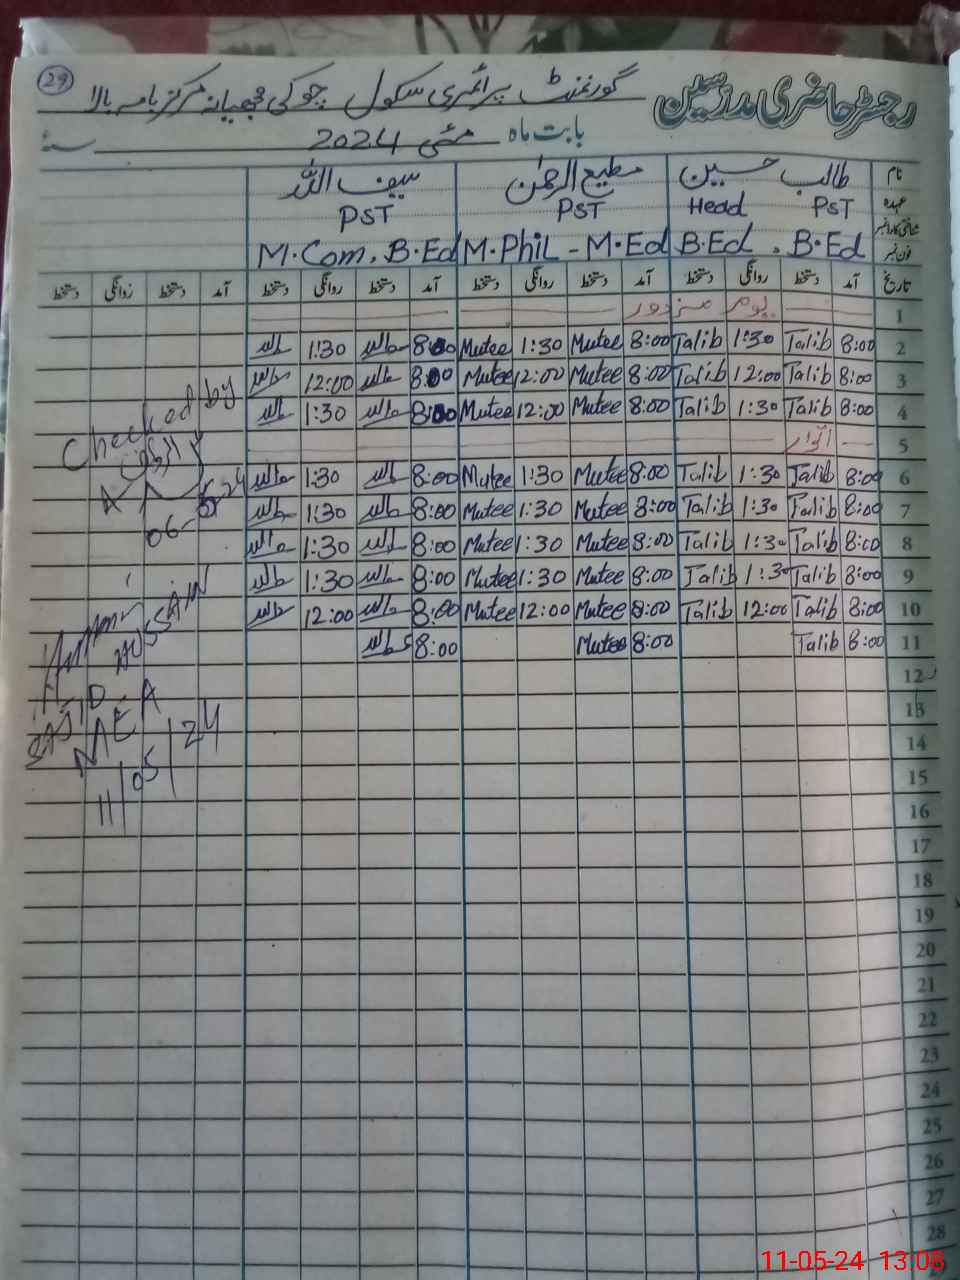 29
رجسٹر حاضری مدرسین
گورنمنٹ پرائمری سکول چوکی مرکز بامہ بالا
بابت ماہ مئی 2024 سنہ
نام طالب حسین مطیع الرحمٰن سیف اللہ
عہدہ PST Head PST PST
شناختی کارڈ نمبر
فون نمبر B.Ed , B.Ed M.Phil - M.Ed M.Com, B.Ed
تاریخ آمد دستخط روانگی دستخط آمد دستخط روانگی دستخط آمد دستخط روانگی دستخط آمد دستخط روانگی دستخط
1 یوم مزدور
2 8:00 Talib 1:30 Talib 8:00 Mutee 1:30 Mutee 8:00 1:30
3 8:00 Talib 12:00 Talib 8:00 Mutee 12:00 Mutee 8:00 12:00
4 8:00 Talib 1:30 Talib 8:00 Mutee 12:00 Mutee 8:00 1:30
5 اتوار
6 8:00 Talib 1:30 Talib 8:00 Mutee 1:30 Mutee 8:00 1:30
7 8:00 Talib 1:30 Talib 8:00 Mutee 1:30 Mutee 8:00 1:30
8 8:00 Talib 1:30 Talib 8:00 Mutee 1:30 Mutee 8:00 1:30
9 8:00 Talib 1:30 Talib 8:00 Mutee 1:30 Mutee 8:00 1:30
10 8:00 Talib 12:00 Talib 8:00 Mutee 12:00 Mutee 8:00 12:00
11 8:00 Talib 8:00 Mutee 8:00
12
13
14
15
16
17
18
19
20
21
22
23
24
25
26
27
28
Checked by
06-05-24
SAJID HUSSAIN
MEA
11/05/24
11-05-24 13:08